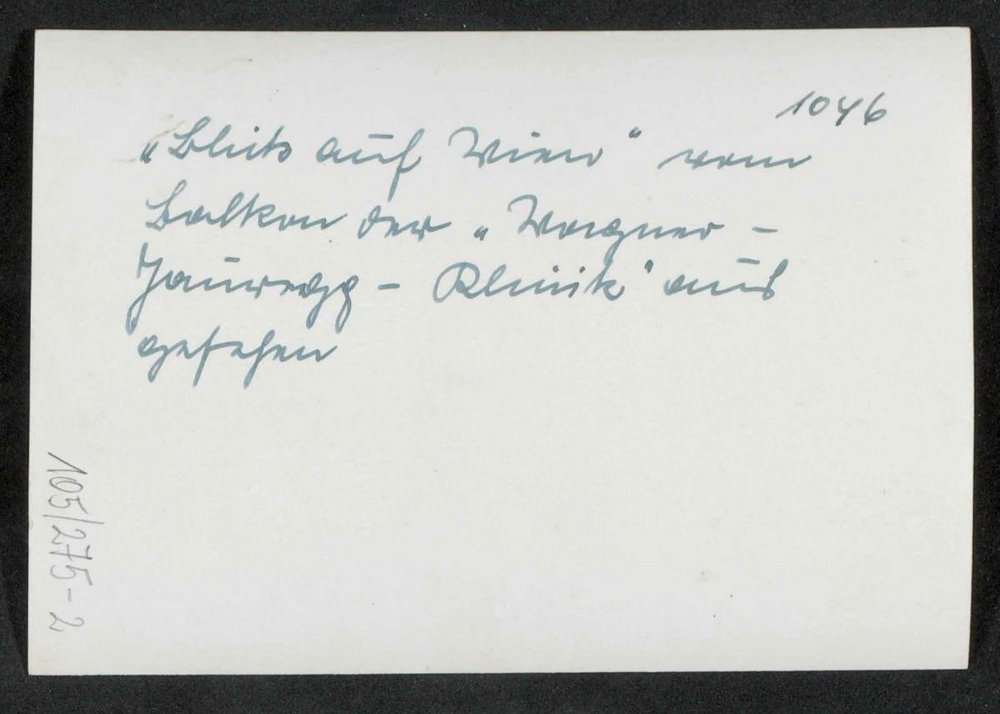 1046
„Blick auf Wien" vom
Balkon der „Wagner-
Jauregg - Klinik" aus
gesehen
105/275-2